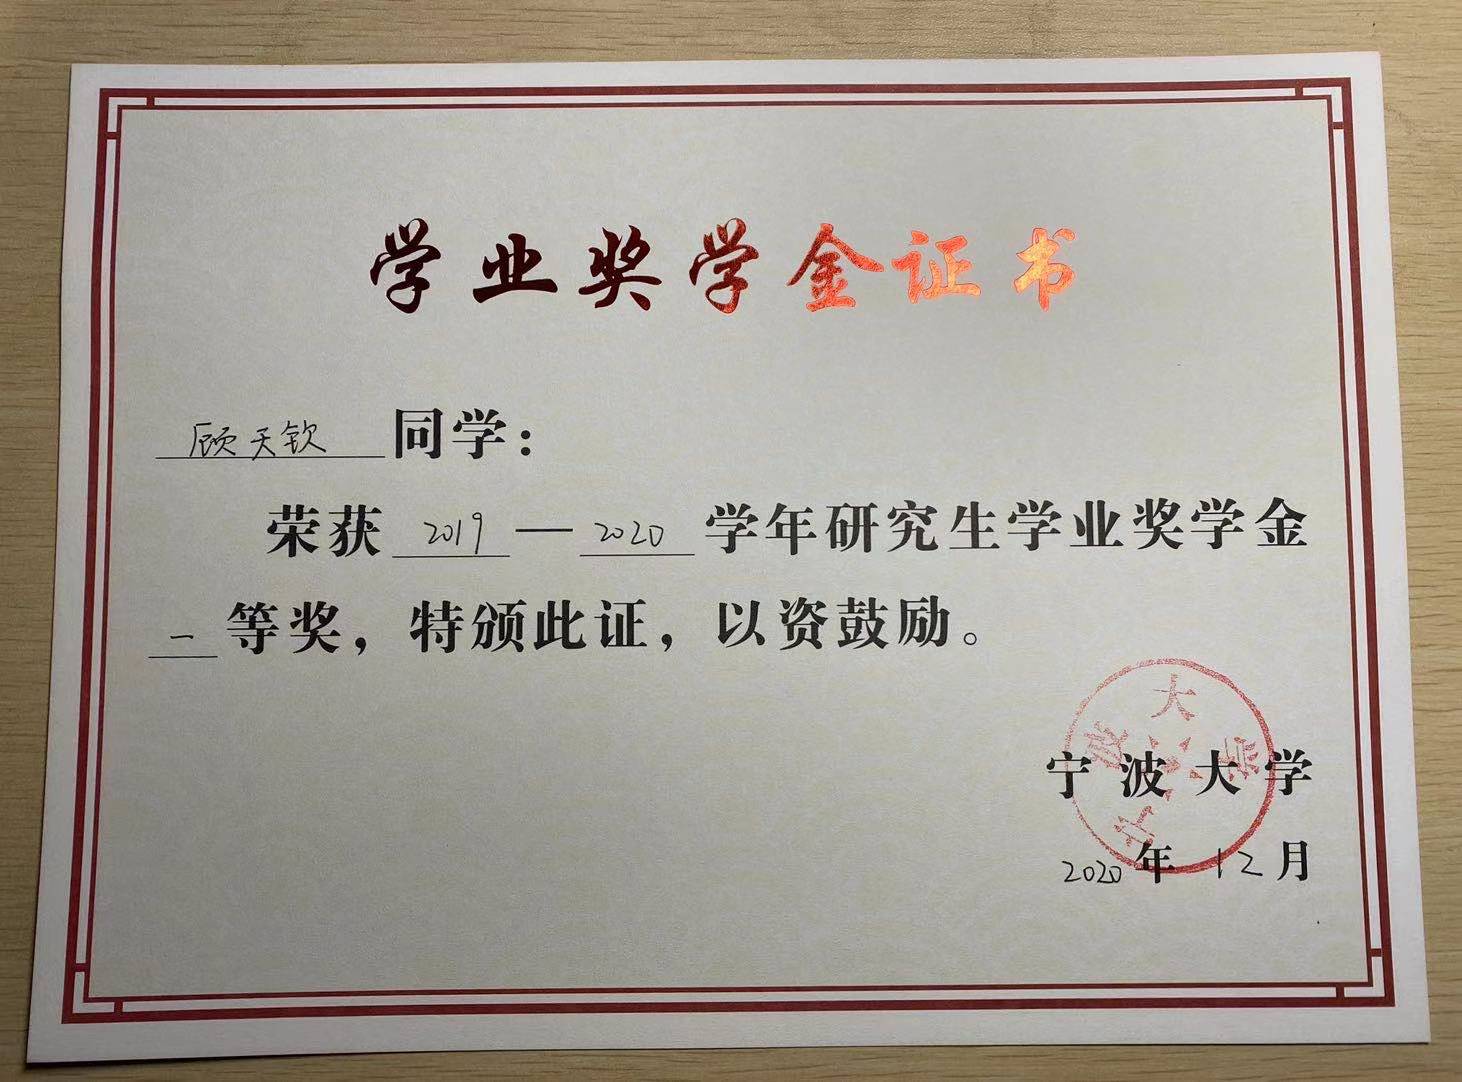 学业奖学金证书
顾天钦同学：
荣获2019—2020学年研究生学业奖学金
一等奖，特颁此证，以资鼓励。
宁波大学
2020年12月
宁波大学